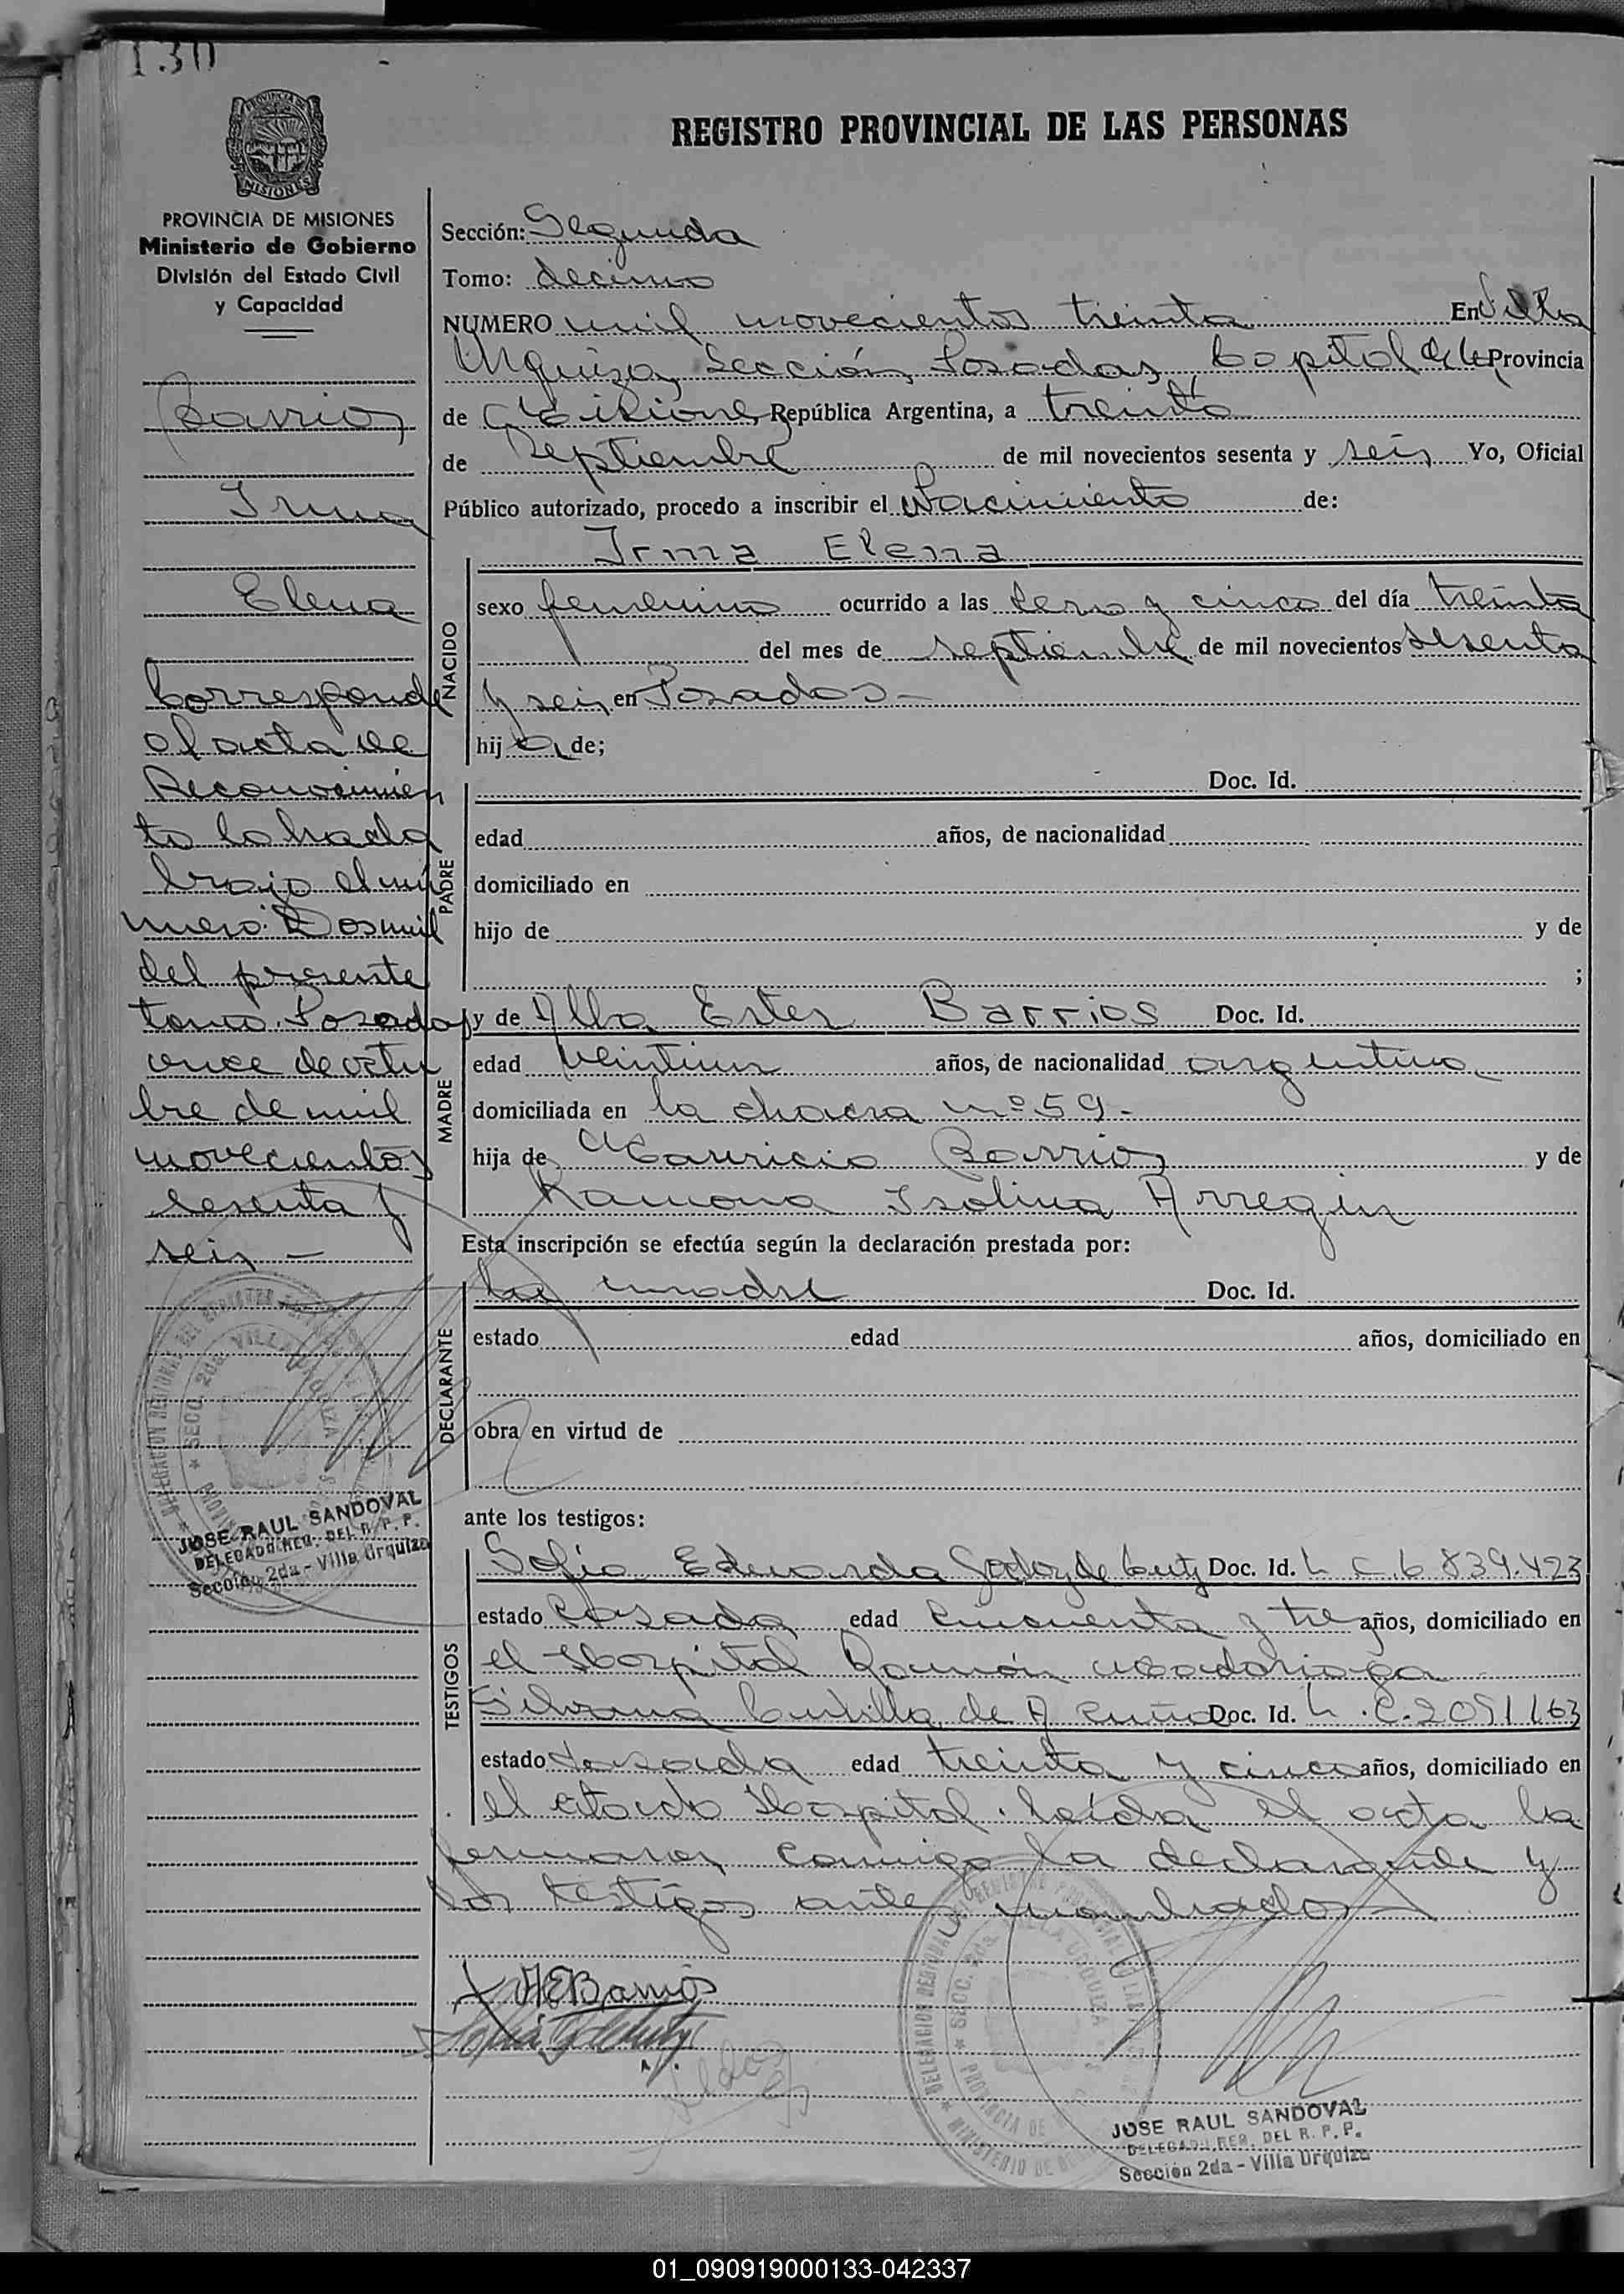 1.930
PROVINCIA DE MISIONES
REGISTRO PROVINCIAL DE LAS PERSONAS
PROVINCIA DE MISIONES
Ministerio de Gobierno
División del Estado Civil
y Capacidad
Barrios
Irma
Elena
Corresponde
al acta de
Reconocimien
to labrada
bajo el nú
mero: Dos mil
del presente
tomo. Posadas
once de octu
bre de mil
novecientos
sesenta y
seis —
JOSE RAUL SANDOVAL
DELEGADO REG. DEL R. P. P.
Sección 2da - Villa Urquiza
Sección: Segunda
Tomo: decimo
NUMERO mil novecientos treinta En Villa
Urquiza, Sección Posadas, Capital de la Provincia
de Misiones República Argentina, a treinta
de Septiembre de mil novecientos sesenta y seis Yo, Oficial
Público autorizado, procedo a inscribir el Nacimiento de:
NACIDO
Irma Elena
sexo femenino ocurrido a las cero y cinco del día treinta
del mes de septiembre de mil novecientos sesenta
y seis en Posadas —
hija de;
PADRE
Doc. Id.
edad años, de nacionalidad
domiciliado en
hijo de y de
;
MADRE
y de Alba Ester Barrios Doc. Id.
edad veintiun años, de nacionalidad argentina
domiciliada en la chacra nº 59.-
hija de Mauricio Barrios y de
Ramona Isolina Arreguin
Esta inscripción se efectúa según la declaración prestada por:
DECLARANTE
la madre Doc. Id.
estado edad años, domiciliado en
obra en virtud de
ante los testigos:
TESTIGOS
Sofia Eduarda Godoy de Doc. Id. L C. 6 839.423
estado casada edad cincuenta y tre años, domiciliado en
el Hospital Ramón Madariaga
Silvana de Acuña Doc. Id. L.C. 2051163
estado casada edad treinta y cinco años, domiciliado en
el citado Hospital. Leída el acta la
firmaron conmigo la declarante y
los testigos antes nombrados —
A E Barrios
JOSE RAUL SANDOVAL
DELEGADO REG. DEL R. P. P.
Sección 2da - Villa Urquiza
01_090919000133-042337